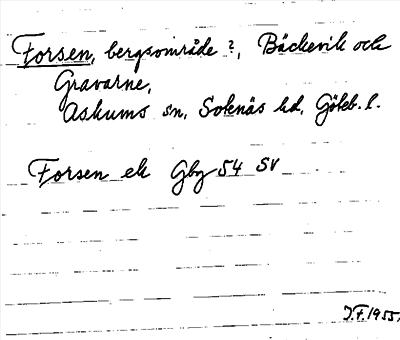 Forsen, bergsområde ?, Bäckevik och
Gravarne,
Askums sn, Sotenäs hd, Göteb. l.
Forsen ek Gbg 54 SV
J.F. 1955.